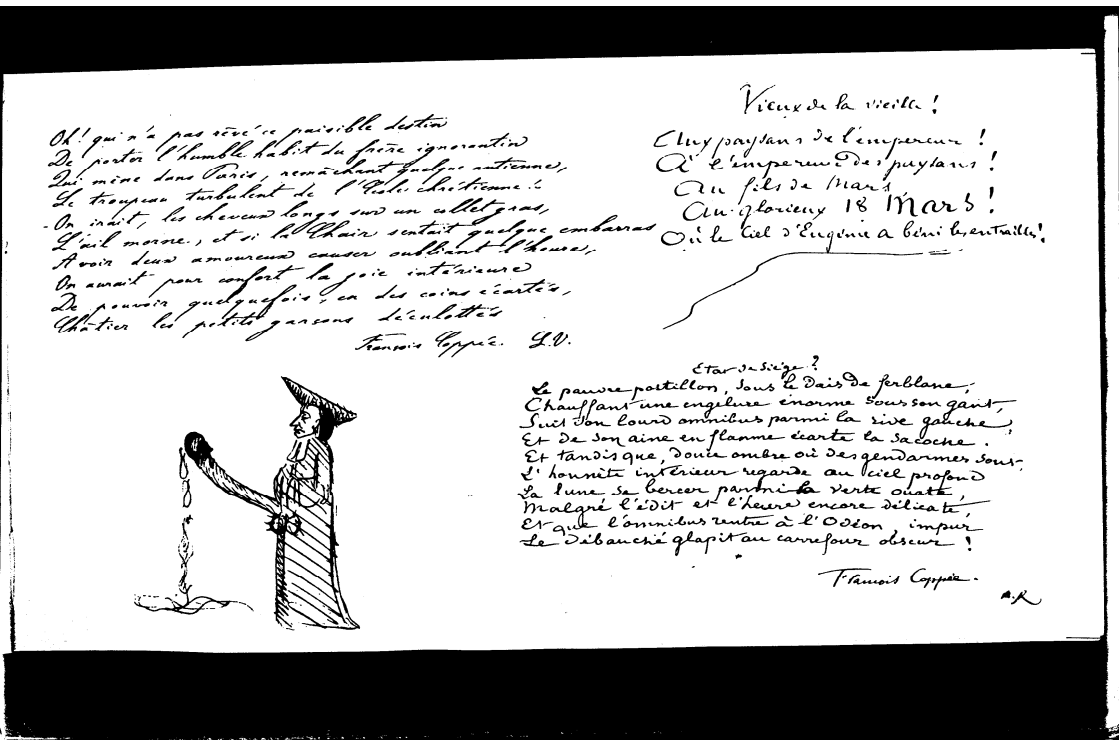 Oh! qui n'a pas rêvé ce paisible destin
De porter l'humble habit du frère ignorantin
Qui mène dans Paris, remâchant quelque antienne,
Le troupeau turbulent de l'École chrétienne!
- On irait, les cheveux longs sur un collet gras,
L'œil morne, et si la Chair sentait quelque embarras
A voir deux amoureux causer oubliant l'heure,
On aurait pour confort la joie intérieure
De pouvoir quelquefois, en des coins écartés,
Châtier les petits garçons déculottés
François Coppée. L.V.
Vieux de la vieille!
Aux paysans de l'empereur!
À l'empereur des paysans!
Au fils de Mars,
Au glorieux 18 Mars!
Où le Ciel d'Eugénie a béni les entrailles!
Etat de siège?
Le pauvre postillon, sous le dais de ferblanc,
Chauffant une engelure énorme sous son gant,
Suit son lourd omnibus parmi la rive gauche,
Et de son aine en flamme écarte la sacoche.
Et tandis que, douce ombre où des gendarmes sont,
L'honnête intérieur regarde au ciel profond
La lune se bercer parmi la verte ouate,
Malgré l'édit et l'heure encore délicate,
Et que l'omnibus rentre à l'Odéon, impur
Le débauché glapit au carrefour obscur!
François Coppée.
A.R